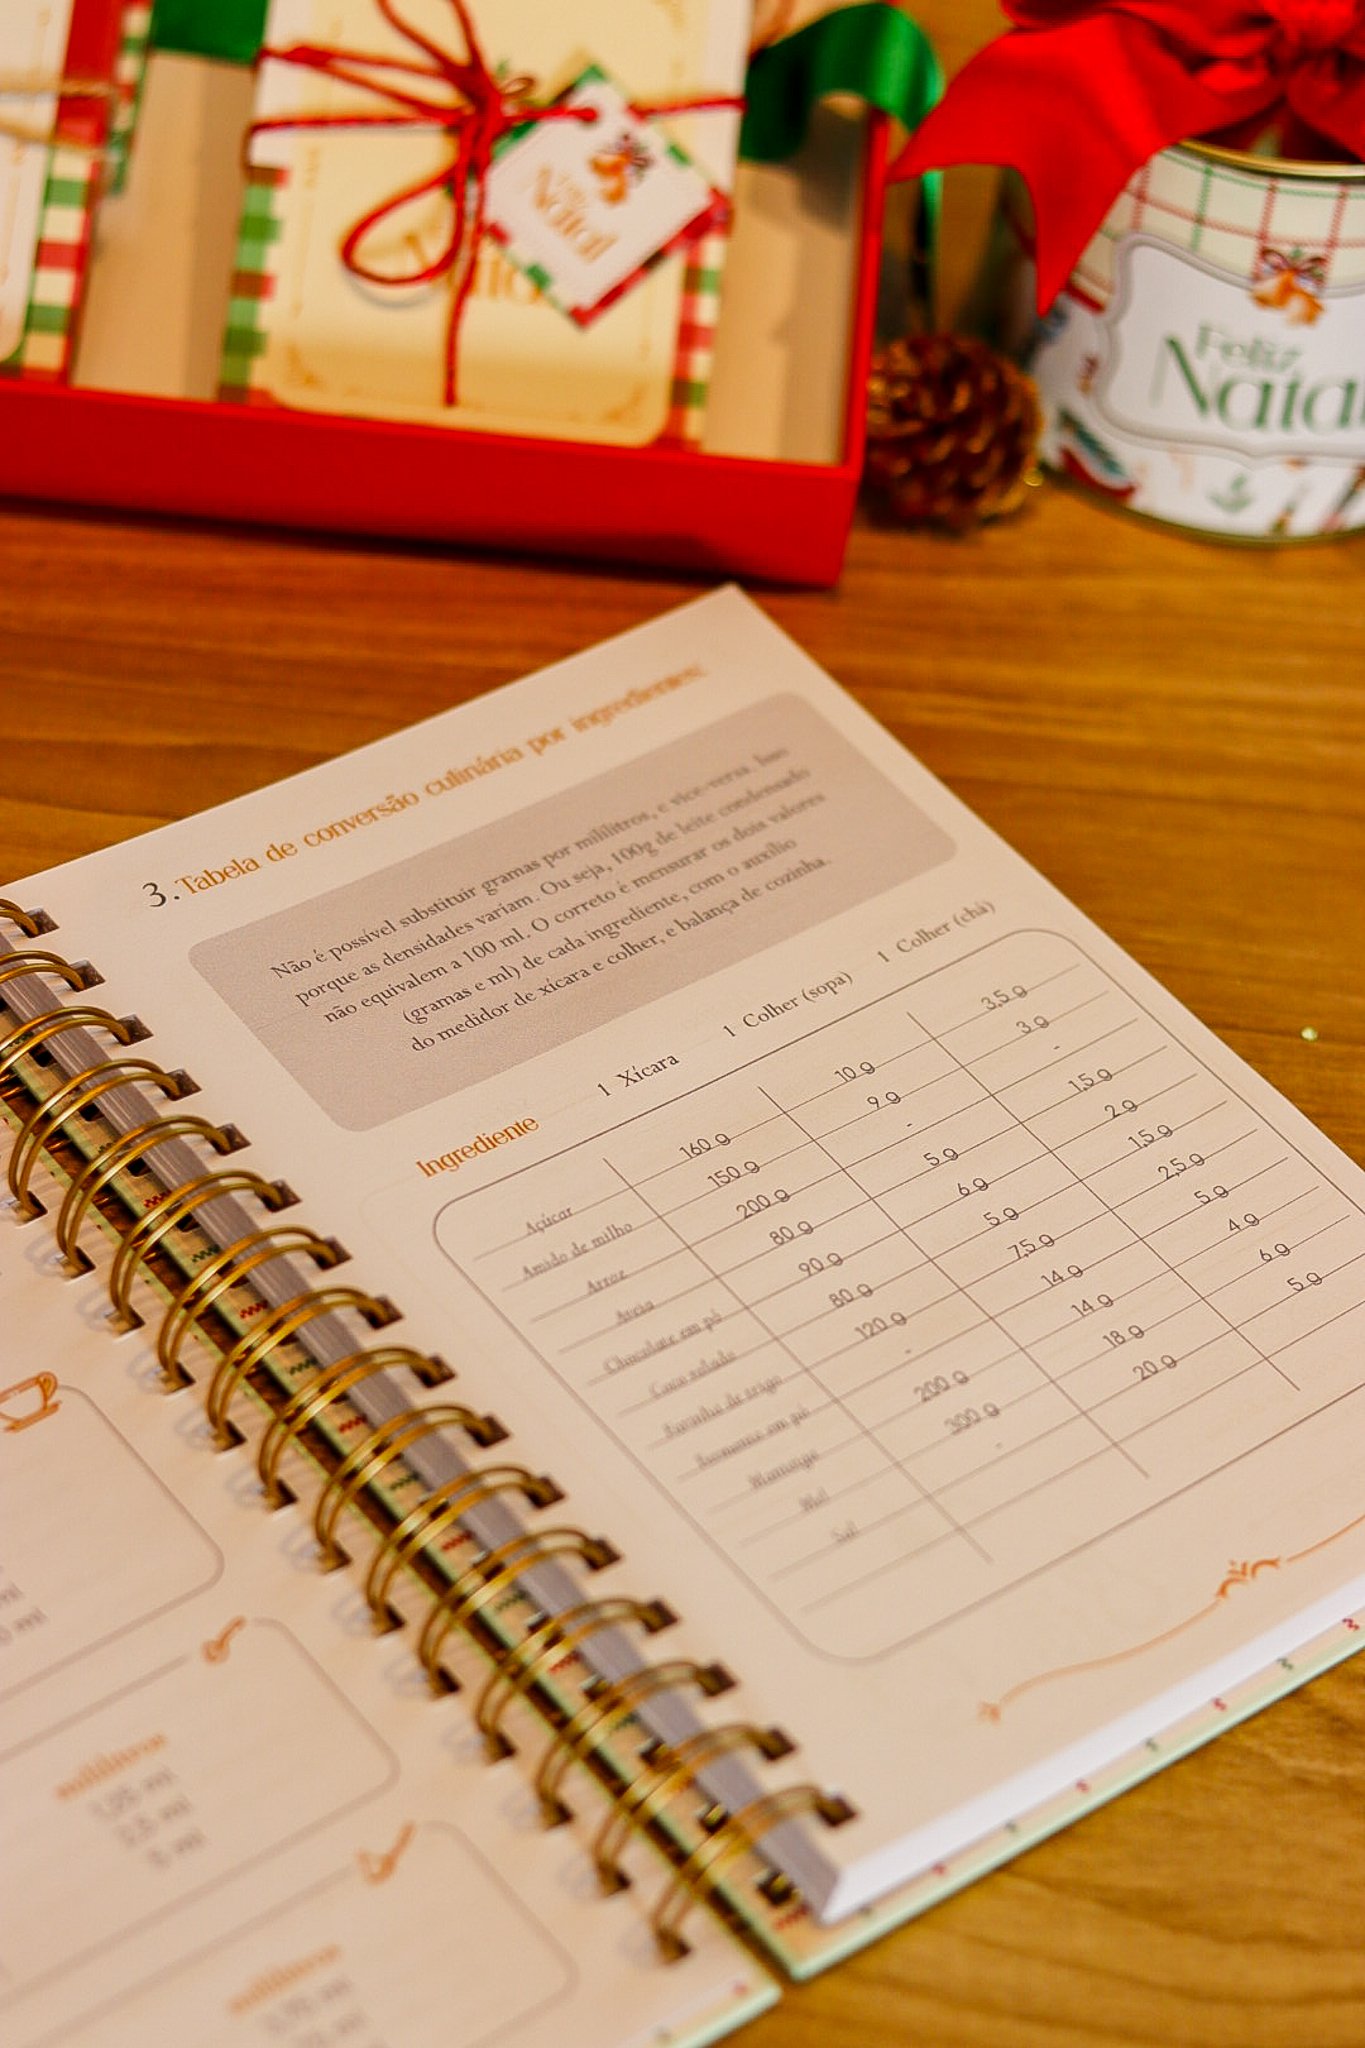 Natal
Feliz
Natal
3. Tabela de conversão culinária por ingredientes:
Não é possível substituir gramas por mililitros, e vice-versa. Isso
porque as densidades variam. Ou seja, 100g de leite condensado
não equivalem a 100 ml. O correto é mensurar os dois valores
(gramas e ml) de cada ingrediente, com o auxílio
do medidor de xícara e colher, e balança de cozinha.
Ingrediente 1 Xícara 1 Colher (sopa) 1 Colher (chá)
Açúcar 160 g 10 g 3,5 g
Amido de milho 150 g 9 g 3 g
Arroz 200 g - -
Aveia 80 g 5 g 1,5 g
Chocolate em pó 90 g 6 g 2 g
Coco ralado 80 g 5 g 1,5 g
Farinha de trigo 120 g 7,5 g 2,5 g
Fermento em pó - 14 g 5 g
Manteiga 200 g 14 g 4 g
Mel 300 g 18 g 6 g
Sal - 20 g 5 g
mililitros
1,25 ml
2,5 ml
5 ml
mililitros